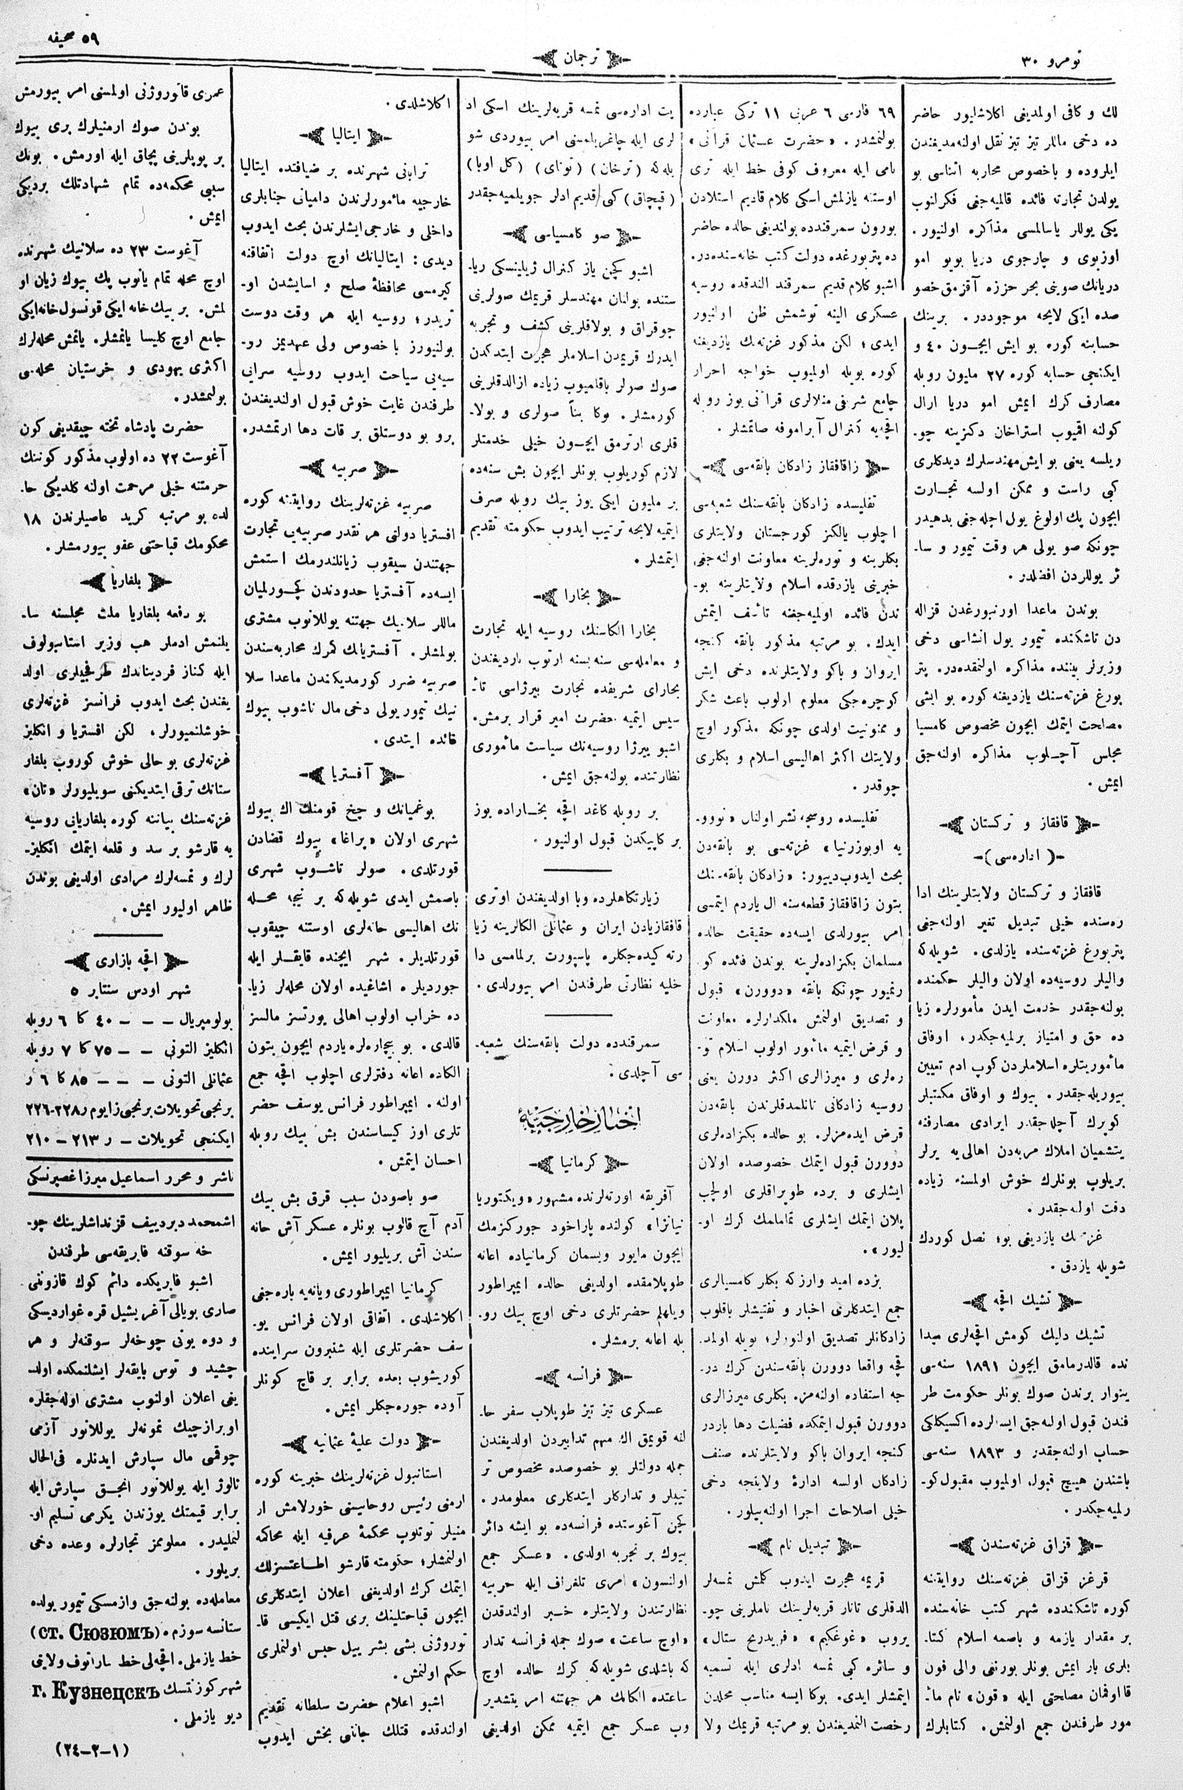 نومرو ٣٠
ترجمان
٥٩ صحيفه
لك و كافى اولمديغى اكلاشليور حاضر
ده دخى ماللر تيز تيز نقل اولنه‌مديغندن
ايلروده و باخصوص محاربه اثناسى بو
يولدن تجارته فائده قالميه‌جغى فكرلنوب
يكى يوللر ياسالمسى مذاكره اولنيور.
اوزبوى و چارجوى دريا بويو امو
دريانك صوينى بحر خزره آقزمق خصو
صده ايكى لايحه موجوددر. برينك
حسابنه كوره بو ايش ايچون ٤٠ و
ايكنجى حسابه كوره ٢٧ مليون روبله
مصارف كرك ايمش امو دريا ارال
كولنه اقيوب استراخان دكزينه چو-
ريلسه يعنى بو ايش مهندسلرك ديدكلرى
كبى راست و ممكن اولسه تجارت
ايچون پك اولوغ يول اچله‌جغى بدهيدر
چونكه صو يولى هر وقت تيمور و سا-
ئر يوللردن افضلدر.
بوندن ماعدا اورنبورغدن قزاله
دن تاشكنده تيمور يول انشاسى دخى
وزيرلر بيننده مذاكره اولنمقده‌در. پتر
بورغ غزته‌سنك يازديغنه كوره بو ايشى
مصلحت ايتمك ايچون مخصوص كامسيا
مجلس آچلوب مذاكره اولنه‌جق
ايمش.
قافقاز و تركستان
( اداره‌سى )
قافقاز و تركستان ولايتلرينك ادا
ره‌سنده خيلى تبديل تغير اولنه‌جغى
پتربورغ غزته‌سنده يازلدى. شويله‌كه
واليلر روسيه‌ده اولان واليلر حكمنده
بولنه‌جقدر خذمت ايدن مأمورلره زيا
ده حق و امتياز برلميه‌جكدر، اوفاق
مأموريتلره اسلاملردن كوب ادم تعيين
بيوريله‌جقدر. بيوك و اوفاق مكتبلر
كوبرك آچله‌جقدر ايرادى مصارفنه
يتشميان املاك مربه‌دن اهالى‌يه يرلر
بريلوب بونلرك خوش اولمسنه زياده
دقت اوله‌جقدر.
غزته‌لك يازديغى بو؛ نصل كوردك
شويله يازدق.
تشيك اقچه
تشيك دليك كومش اقچه‌لرى ميدا
نده قالدرمامق ايچون ١٨٩١ سنه‌سى
ينوار برندن صوك بونلر حكومت طر
فندن قبول اوله‌جق ايسه‌لرده اكسيكلكى
حساب اولنه‌جقدر و ١٨٩٣ سنه‌سى
باشندن هيچ قبول اولميوب مقبول كو-
رلميه‌جكدر.
قزاق غزته‌سندن
قرغز قزاق غزته‌سنك روايتنه
كوره تاشكندده شهر كتب خانه‌سنده
بر مقدار يازمه و باصمه اسلام كتا-
بلرى بار ايمش بونلر بورنغى والى فون
قاوفمان مصلحتى ايله «قون» نام مأ-
مور طرفندن جمع اولنمش. كتابلرك
٦٩ فارسى ٦ عربى ١١ تركى عبارده
بولنمشدر. «حضرت عثمان قرآنى»
نامى ايله معروف كوفى خط ايله ترى
اوستنه يازلمش اسكى كلام قاديم استلادن
بورون سمرقندده بولنديغى حالده حاضر
ده پتربورغده دولت كتب خانه‌سنده‌در.
اشبو كلام قديم سمرقند الندقده روسيه
عسكرى الينه توشمش ظن اولنيور
ايدى؛ لكن مذكور غزته‌نك يازديغنه
كوره بويله اولميوب خواجه احرار
جامع شرفى منلالرى قرآنى يوز روبله
اقچه‌يه كنرال آبراموفه صاتمشلر.
زاقافقاز زادكان بانقه‌سى
تفليسده زادكان بانقه‌سنك شعبه‌سى
اچلوب يالكز كورجستان ولايتلرى
بكلرينه و توره‌لرينه معاونت اولنه‌جغى
خبرينى يازدقده اسلام ولايتلرينه بو-
ندن فائده اولميه‌جغنه تأسف ايتمش
ايدك. بو مرتبه مذكور بانقه كنجه
ايروان و باكو ولايتلرنده دخى ايش
كوره‌جكى معلوم اولوب باعث شكر
و ممنونيت اولدى چونكه مذكور اوچ
ولايتك اكثر اهاليسى اسلام و بكلرى
چوقدر.
تفليسده روسچه نشر اولنان «نووو-
يه اوبوزرنيا» غزته‌سى بو بانقه‌دن
بحث ايدوب دييور: «زادكان بانقه‌سنك
بتون زاقافقاز قطعه‌سنه ال ياردم ايتمسى
امر بيورلدى ايسه‌ده حقيقت حالده
مسلمان بكزاده‌لرينه بوندن فائده كو
رنميور چونكه بانقه «دوورن» قبول
و تصديق اولنمش ملكدارلره معاونت
و قرض ايتميه مأمور اولوب اسلام تو-
ره‌لرى و ميرزالرى اكثر دورن يعنى
روسيه زادكانى تانلمدقلرندن بانقه‌دن
قرض ايده‌مزلر. بو حالده بكزاده‌لرى
دوورن قبول ايتمك خصوصده اولان
ايشلرى و برده طوپراقلرى اولچب
پلان ايتمك ايشلرى تمامامك كرك او-
ليور».
بزده اميد وارزكه بكلر كامسيالرى
جمع ايتدكلرنى اخبار و تفتيشلر باقلوب
زادكانلر تصديق اولنورلر؛ بويله اولمد-
قچه واقعا دوورن بانقه‌سندن كرك در-
جه استفاده اولنه‌مز. بكلرى ميرزالرى
دوورن قبول ايتمكده فضيلت دها باردر
كنجه ايروان باكو ولايتلرنده صنف
زادكان اولسه ادارهٔ ولاينجه دخى
خيلى اصلاحات اجرا اولنه‌بيلور.
تبديل نام
قريمه هجرت ايدوب كلمش نمسه‌لر
الدقلرى تاتار قريه‌لرينك ناملرينى چو-
يروب «غوغكيم» «فريدريخ ستال»
و سائره كبى نمسه ادلرى ايله تسميه
ايتمشلر ايدى. بوكا ايسه مناسب محلدن
رخصت النمديغندن بو مرتبه قريمك ولا
يت اداره‌سى نمسه قريه‌لرينك اسكى اد
لرى ايله چاغريلمسنى امر بيوردى شو
يله‌كه (ترخان) (توتاى) (كل اوبا)
(قپچاق) كبى قديم ادلر جويلميه جقدر
صو كامسياسى
اشبو كچن ياز كنرال ژيلينسكى ريا-
ستنده بولنان مهندسلر قريمك صولرينى
چوقراق و بولاقلرينى كشف و تجربه
ايدرك قريمدن اسلاملر هجرت ايتدكدن
صوك صولر باقلميوب زياده ازالدقلرينى
كورمشلر. بوكا بناً صولرى و بولا-
قلرى ارترمق ايچون خيلى خدمتلر
لازم كوريلوب بونلر ايچون بش سنه‌ده
بر مليون ايكى يوز بيك روبله صرف
ايتميه لايحه ترتيب ايدوب حكومته تقديم
ايتمشلر.
بخارا
بخارا الكاسنك روسيه ايله تجارت
و معامله‌سى سنه بسنه ارتوب بارديغندن
بخاراى شريفده تجارت بيرژاسى تأ-
سيس ايتميه حضرت امير قرار برمش.
اشبو بيرژا روسيه‌نك سياست مأمورى
نظارتنده بولنه‌جق ايمش.
بر روبله كاغد اقچه بخاراده يوز
بر كاپيكدن قبول اولنيور.
زيارتكاهلرده وبا اولديغندن اوترى
قافقازيادن ايران و عثمانلى الكالرينه زيا
رته كيده‌جكلره پاسپورت برلمامسى دا
خليه نظارتى طرفندن امر بيورلدى.
سمرقندده دولت بانقه‌سنك شعبه-
سى آچلدى.
اخبار خارجيه
كرمانيا
آفريقه اورته‌لرنده مشهور «ويكتوريا
نيانزا» كولنده پاراخود جوركزمك
ايچون مايور ويسمان كرمانياده اعانه
طوپلامقده اولديغى حالده ايمپراطور
ويلهلم حضرتلرى دخى اوچ بيك رو-
بله اعانه برمشلر.
فرانسه
عسكرى تيز تيز طوپلاب سفر حا-
لنه قويمق اك مهم تدابيردن اولديغندن
جمله دولتلر بو خصوصده مخصوص تر
تيبلر و تداركلر ايتدكلرى معلومدر.
كچن آغوستده فرانسه‌ده بو ايشه دائر
بيوك بر تجربه اولدى. «عسكر جمع
اولنسون» امرى تلغراف ايله حربيه
نظارتندن ولايتلره خبر اولندقدن
«اوچ ساعت» صوك جمله فرانسه تدار
كه باشلدى شويله‌كه كرك حالده اوچ
ساعتده الكانك هر جهتنه امر يتشدير
وب عسكر جمع ايتميه ممكن اولديغى
اكلاشلدى.
ايتاليا
تراپانى شهرنده بر ضيافتده ايتاليا
خارجيه مأمورلرندن داميانى جنابلرى
داخلى و خارجى ايشلرندن بحث ايدوب
ديدى: ايتاليانك اوچ دولت اتفاقنه
كيرمسى محافظهٔ صلح و اسايشدن او-
تريدر؛ روسيه ايله هر وقت دوست
بولنيورز باخصوص ولى عهديمز رو-
سيه‌يى سياحت ايدوب روسيه سرايى
طرفندن غايت خوش قبول اولنديغندن
برو بو دوستلق بر قات دها ارتمشدر.
صربيه
صربيه غزته‌لرينك روايتنه كوره
افستريا دولتى هر نقدر صربيه‌يى تجارت
جهتندن سيقوب زيانلندرمك استمش
ايسه‌ده آفستريا حدودندن كچورلميان
ماللر سلانيك جهتنه يوللانوب مشترى
بولمشلر. آفستريانك كمرك محاربه‌سندن
صربيه ضرر كورمديكندن ماعدا سلا
نيك تيمور يولى دخى مال تاشوب بيوك
فائده ايتدى.
آفستريا
بوغميانك و چخ قومنك اك بيوك
شهرى اولان «پراغا» بيوك قضادن
قورتلدى. صولر تاشوب شهرى
باصمش ايدى شويله‌كه بر نيچه محله
نك اهاليسى خانه‌لرى اوستنه چيقوب
قورتلديلر. شهر ايچنده قايقلر ايله
جورديلر. اشاغيده اولان محله‌لر زيا-
ده خراب اولوب اهالى يورتسز مالسز
قالدى. بو بيچاره‌لره ياردم ايچون بتون
الكاده اعانه دفترلرى اچلوب اقچه جمع
اولنه. ايمپراطور فرانس يوسف حضر
تلرى اوز كيساسندن بش بيك روبله
احسان ايتمش.
صو باصودن سبب قرق بش بيك
آدم آچ قالوب بونلره عسكر آش خانه
سندن آش بريليور ايمش.
كرمانيا ايمپراطورى ويانه‌يه باره‌جغى
اكلاشلدى. اتفاقى اولان فرانس يو-
سف حضرتلرى ايله شنبرون سراينده
كوريشوب بعده برابر بر قاچ كونلر
آوده جوره‌جكلر ايمش.
دولت عليهٔ عثمانيه
استانبول غزته‌لرينك خبرينه كوره
ارمنى رئيس روحاسينى خورلامش ار
منيلر توتلوب محكمهٔ عرفيه ايله محاكمه
اولنمشلر؛ حكومته قارشو اطاعتسزلك
ايتمك كرك اولديغى اعلان ايتدكلرى
ايچون قباحتلينك برى قتل ايكيسى قا-
توروژنى بشى بشر ييل حبس اولنملرى
حكم اولنمش.
اشبو اعلام حضرت سلطانه تقديم
اولندقده قتلك جانى بخش ايدوب
عمرى قاتوروژنى اولمسنى امر بيورمش
بوندن صوك ارمنيلرك برى بيوك
بر پوپلرينى پچاق ايله اورمش. بونك
سببى محكمه‌ده تمام شهادتلك برديكى
ايمش.
آغوست ٢٣ ده سلانيك شهرنده
اوچ محله تمام يانوب پك بيوك زيان او
لمش. بر بيك خانه ايكى قونسول خانه ايكى
جامع اوچ كليسا ياتمشلر. ياتمش محله‌لرك
اكثرى يهودى و خرستيان محله‌سى
بولنمشدر.
حضرت پادشاه تخته چيقديغى كون
آغوست ٢٢ ده اولوب مذكور كوننك
حرمتنه خيلى مرحمت اولنه كلديكى حا-
لده بو مرتبه كريد عاصيلرندن ١٨
محكومك قباحتى عفو بيورمشلر.
بلغاريا
بو رفعه بلغاريا ملت مجلسنه سا-
يلنمش ادملر هب وزير استامبولوف
ايله كناز فرديناندك طرفجيلرى اولد
يغندن بحث ايدوب فرانسز غزته‌لرى
خوشلنميورلر، لكن افستريا و انكليز
غزته‌لرى بو حالى خوش كوروب بلغار
ستانك ترقى ايتديكنى سويليورلر «تان»
غزته‌سنك بياننه كوره بلغاريايى روسيه
يه قارشو بر سد و قلعه ايتمك انكليز-
لرك و نمسه‌لرك مرادى اولديغى بوندن
ظاهر اوليور ايمش.
اقچه بازارى
شهر اودس سنتابر ٥
پولومپريال — — — ٤٠ كا ٦ روبله
انكليز التونى — — ٧٥ كا ٧ روبله
عثمانلى التونى — — — ٨٥ كا ٦ ر
برنجى تحويلات برنجى زايوم ر٢٢٨-٢٢٦
ايكنجى تحويلات — ر ٢١٣ — ٢١٠
ناشر و محرر اسماعيل ميرزا غصپرنسكى
اشمحمد دبردييف قزنداشلرينك چو-
خه سوقنه فابريقه‌سى طرفندن
اشبو فابريكده دائم كوك قازونى
صارى بويالى آغر يشيل قره غوارديسكى
و دوه يونى چوخه‌لر سوقنه‌لر و هر
چشيد و توس بايقه‌لر ايشلنمكده اولد-
يغى اعلان اولنوب مشترى اوله‌جقلره
اوبرازچيك نمونه‌لر يوللانور آزمى
چوقمى مال سپارش ايدنلره فى‌الحال
نالوژ ايله يوللانور انجق سپارش ايله
برابر قيمتك يوزدن يكرمى تسليم او-
لنمليدر. معلومز تجارلره وعده دخى
بريلور.
معامله‌ده بولنه‌جق وازمسكى تيمور يولده
ستانسه سوزم. (ст. Сюзюмъ)
خط يازملى. اقچه‌لى خط ساراتوف ولايتى
شهر كوزنتسك г. Кузнецскъ
ديو يازملى.
(٢٤-٢-١)